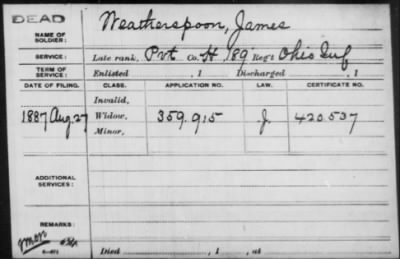 DEAD
NAME OF SOLDIER: Weatherspoon, James
SERVICE: Late rank, Pvt Co. H, 189 Reg't Ohio Inf
TERM OF SERVICE: Enlisted , 1 Discharged , 1
DATE OF FILING. CLASS. APPLICATION NO. LAW. CERTIFICATE NO.
Invalid,
1887 Aug. 27 Widow, 359.915 J. 420537
Minor,
ADDITIONAL SERVICES:
REMARKS:
Died , 1 , at